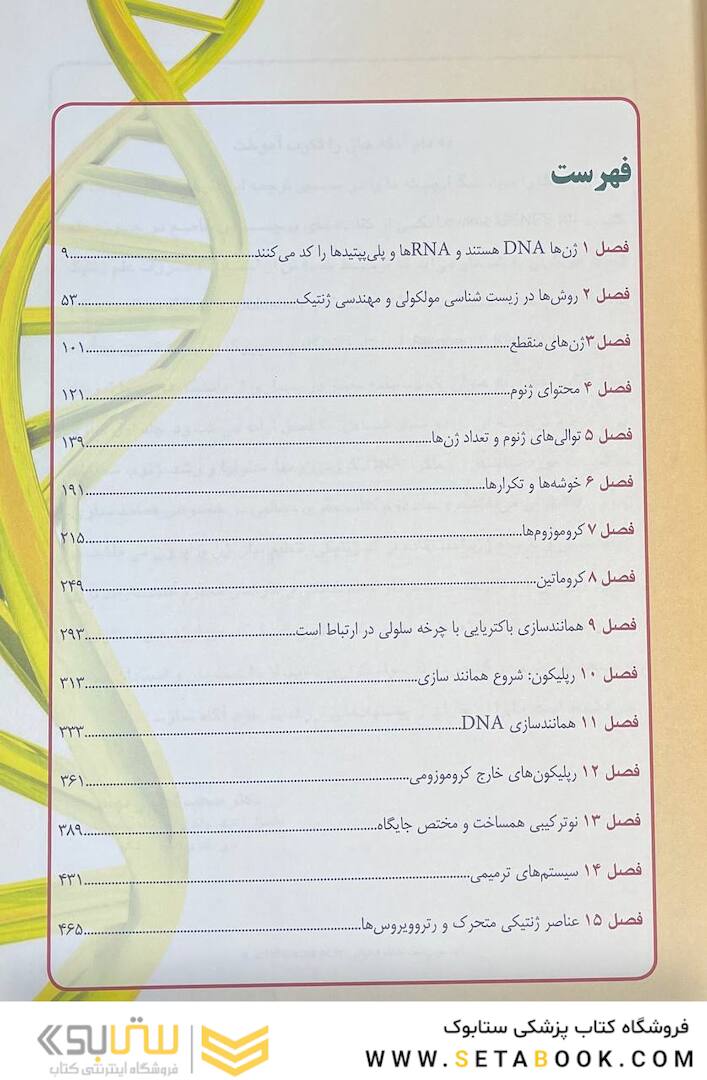 فهرست
فصل ۱ ژن‌ها DNA هستند و RNAها و پلی‌پپتیدها را کد می‌کنند...۹
فصل ۲ روش‌ها در زیست شناسی مولکولی و مهندسی ژنتیک...۵۳
فصل ۳ ژن‌های منقطع...۱۰۱
فصل ۴ محتوای ژنوم...۱۲۱
فصل ۵ توالی‌های ژنوم و تعداد ژن‌ها...۱۳۹
فصل ۶ خوشه‌ها و تکرارها...۱۹۱
فصل ۷ کروموزوم‌ها...۲۱۵
فصل ۸ کروماتین...۲۴۹
فصل ۹ همانندسازی باکتریایی با چرخه سلولی در ارتباط است...۲۹۳
فصل ۱۰ رپلیکون: شروع همانند سازی...۳۱۳
فصل ۱۱ همانندسازی DNA...۳۳۳
فصل ۱۲ رپلیکون‌های خارج کروموزومی...۳۶۱
فصل ۱۳ نوترکیبی همساخت و مختص جایگاه...۳۸۹
فصل ۱۴ سیستم‌های ترمیمی...۴۳۱
فصل ۱۵ عناصر ژنتیکی متحرک و رتروویروس‌ها...۴۶۵
فروشگاه کتاب پزشکی ستابوک
WWW.SETABOOK.COM
ستابوک
فروشگاه اینترنتی کتاب